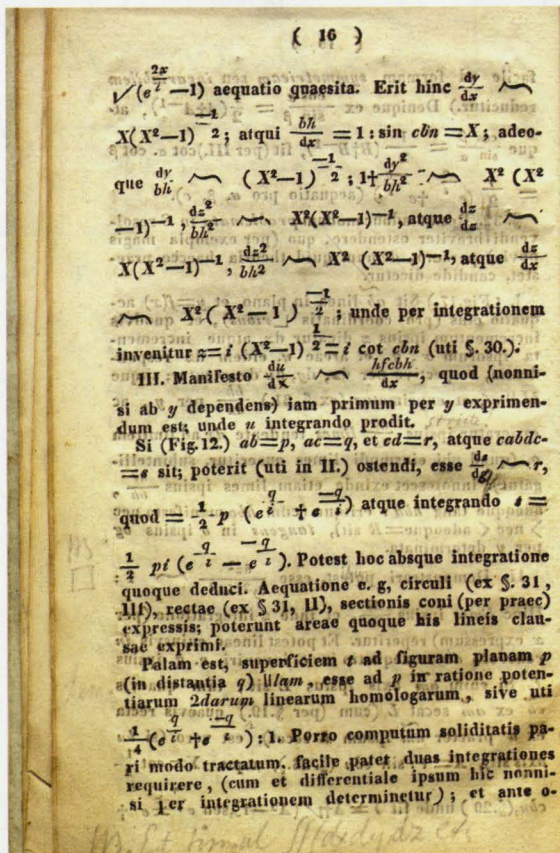 ( 16 )
√(e^{2x/i} —1) aequatio quaesita. Erit hinc dy/dx ⁓
X(X²—1)^{—1/2}; atqui bh/dx = 1 : sin cbn = X; adeo-
que dy/bh ⁓ (X²—1)^{—1/2}; 1† dy²/bh² ⁓ X² (X²
—1)—¹, dz²/bh² ⁓ X²(X²—1)—¹, atque dz/dx ⁓
X(X²—1)—¹, dz²/bh² ⁓ X² (X²—1)—¹, atque dz/dx
⁓ X² (X²—1)^{—1/2}; unde per integrationem
invenitur z=i (X²—1)^{1/2} = i cot cbn (uti §. 30.).
III. Manifesto du/dx ⁓ hfcbh/dx, quod (nonni-
si ab y dependens) iam primum per y exprimen-
dum est; unde u integrando prodit.
Si (Fig. 12.) ab=p, ac=q, et cd=r, atque cabdc-
=s sit; poterit (uti in II.) ostendi, esse ds/dq ⁓ r,
quod = ½ p (e^{q/i} † e^{—q/i}) atque integrando s =
½ pi (e^{q/i} — e^{—q/i}). Potest hoc absque integratione
quoque deduci. Aequatione e. g, circuli (ex §. 31,
III), rectae (ex § 31, II), sectionis coni (per praec)
expressis; poterunt areae quoque his lineis clau-
sae exprimi.
Palam est, superficiem t ad figuram planam p
(in distantia q) |||lam, esse ad p in ratione poten-
tiarum 2darum linearum homologarum, sive uti
¼ (e^{q/i} † e^{—q/i}) : 1. Porro computum soliditatis pa-
ri modo tractatum, facile patet duas integrationes
requirere, (cum et differentiale ipsum hic nonni-
si per integrationem determinetur); et ante o-